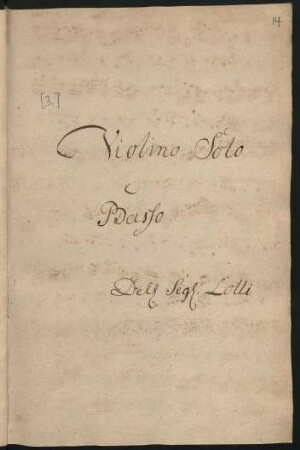 14
[3.]
Violino Solo
e
Basso
Dell Sigl. Lolli